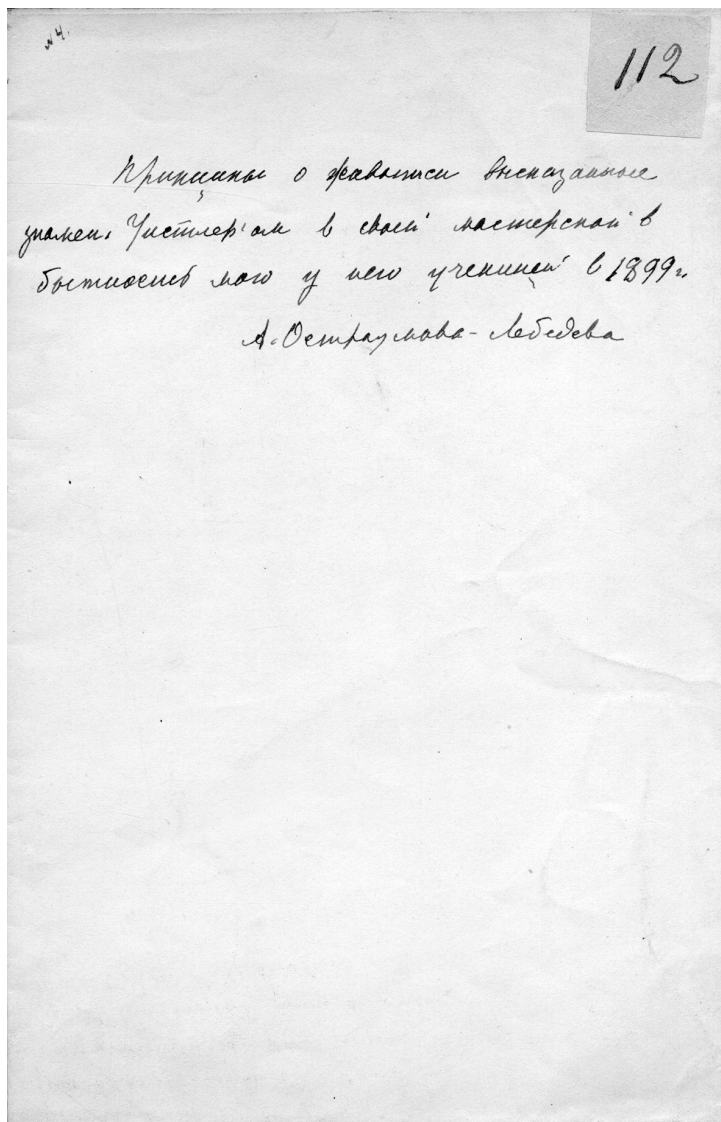 № 4.
112
Принципы о живописи высказанные
знамен. Уистлер'ом в своей мастерской в
бытность мою у него ученицей в 1899 г.
А. Остроумова-Лебедева